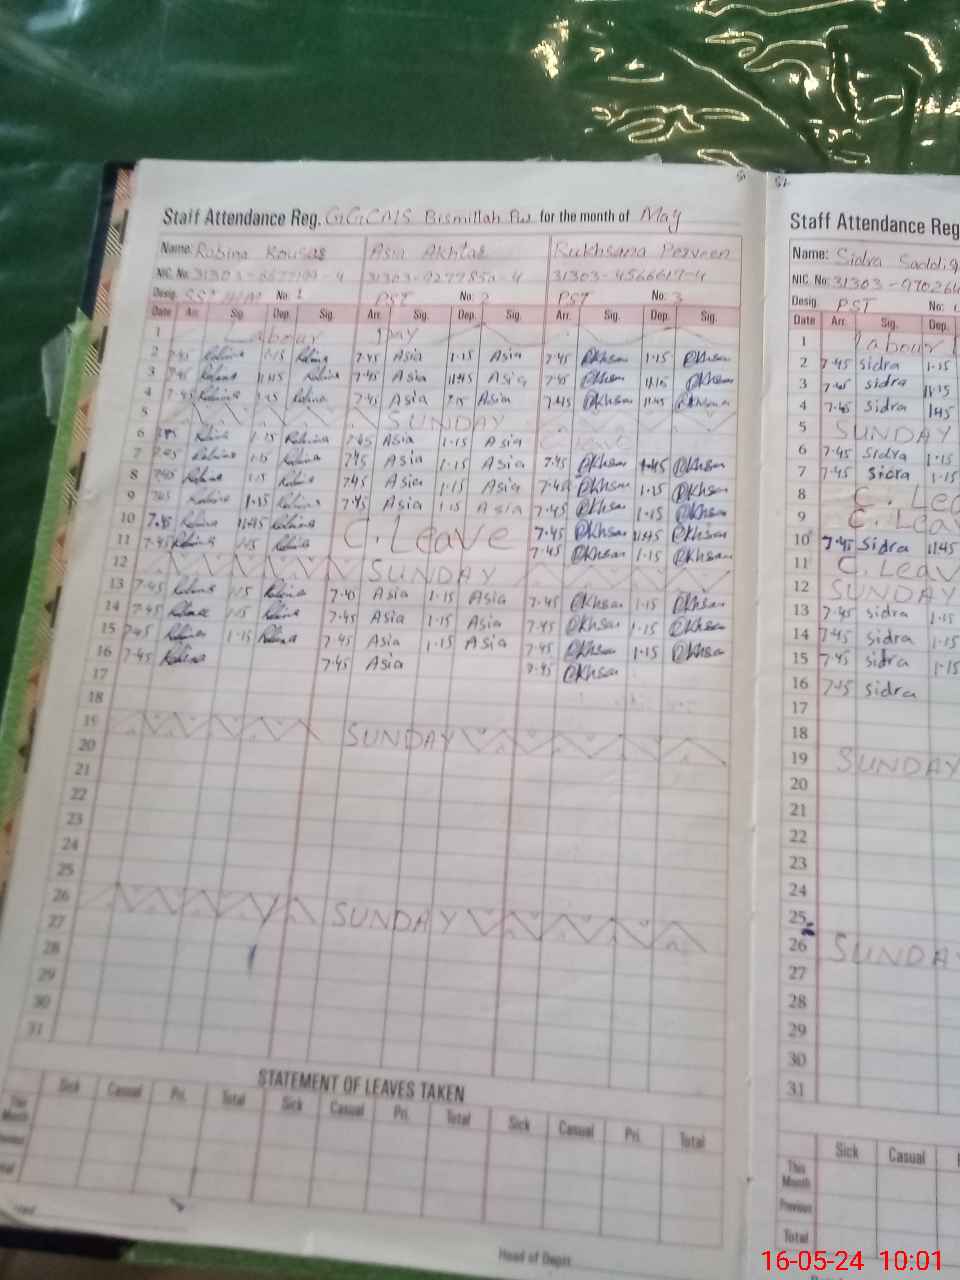 Staff Attendance Reg. G.G.C.M.S Bismillah Pur for the month of May
Name: Robina Kousar Asia Akhtar Rukhsana Perveen
NIC. No. 31303- 31303-9277850-4 31303-4566617-4
Desig. SST H/M No: 1 PST No: 2 PST No: 3
Date Arr. Sig. Dep. Sig. Arr. Sig. Dep. Sig. Arr. Sig. Dep. Sig.
1 Labour Day
2 7-45 Robina 1-15 Robina 7-45 Asia 1-15 Asia 7-45 1-15
3 7-45 Robina 11:45 Robina 7-45 Asia 11:45 Asia 7-45
4 7-45 Robina Robina 7-45 Asia Asia 7-45
5 SUNDAY
6 Robina 1-15 Robina 7-45 Asia 1-15 Asia
7 7-45 Robina 1-15 Robina 7-45 Asia 1-15 Asia 7-45
8 7-45 Robina 1-15 Robina 7-45 Asia 1-15 Asia 7-45 1-15
9 7-45 Robina 1-15 Robina 7-45 Asia 1-15 Asia 7-45 1-15
10 7-45 Robina 11:45 Robina C. Leave 7-45 11:45
11 7-45 Robina 1-15 Robina 7-45 1-15
12 SUNDAY
13 7-45 Robina 1-15 Robina 7-45 Asia 1-15 Asia 7-45 1-15
14 7-45 Robina 1-15 Robina 7-45 Asia 1-15 Asia 7-45 1-15
15 7-45 Robina 1-15 Robina 7-45 Asia 1-15 Asia 7-45 1-15
16 7-45 Robina 7-45 Asia 7-45
17
18
19 SUNDAY
20
21
22
23
24
25
26 SUNDAY
27
28
29
30
31
STATEMENT OF LEAVES TAKEN
Sick Casual Pri. Total Sick Casual Pri. Total Sick Casual Pri. Total
This Month
Head of Deptt
Staff Attendance Reg
Name: Sidra Saddiq
NIC. No: 31303-970264
Desig. PST
Date Arr. Sig. Dep.
1 Labour
2 7-45 Sidra 1-15
3 7-45 Sidra 11:15
4 7-45 Sidra 11:45
5 SUNDAY
6 7-45 Sidra 1-15
7 7-45 Sidra 1-15
8 C. Lea
9 C. Leav
10 7-45 Sidra 11:45
11 C. Leav
12 SUNDAY
13 7-45 Sidra 1-15
14 7-45 Sidra 1-15
15 7-45 Sidra 1-15
16 7-45 Sidra
17
18
19 SUNDAY
20
21
22
23
24
25
26 SUNDAY
27
28
29
30
31
Sick Casual
This Month
Previous
Total
16-05-24 10:01